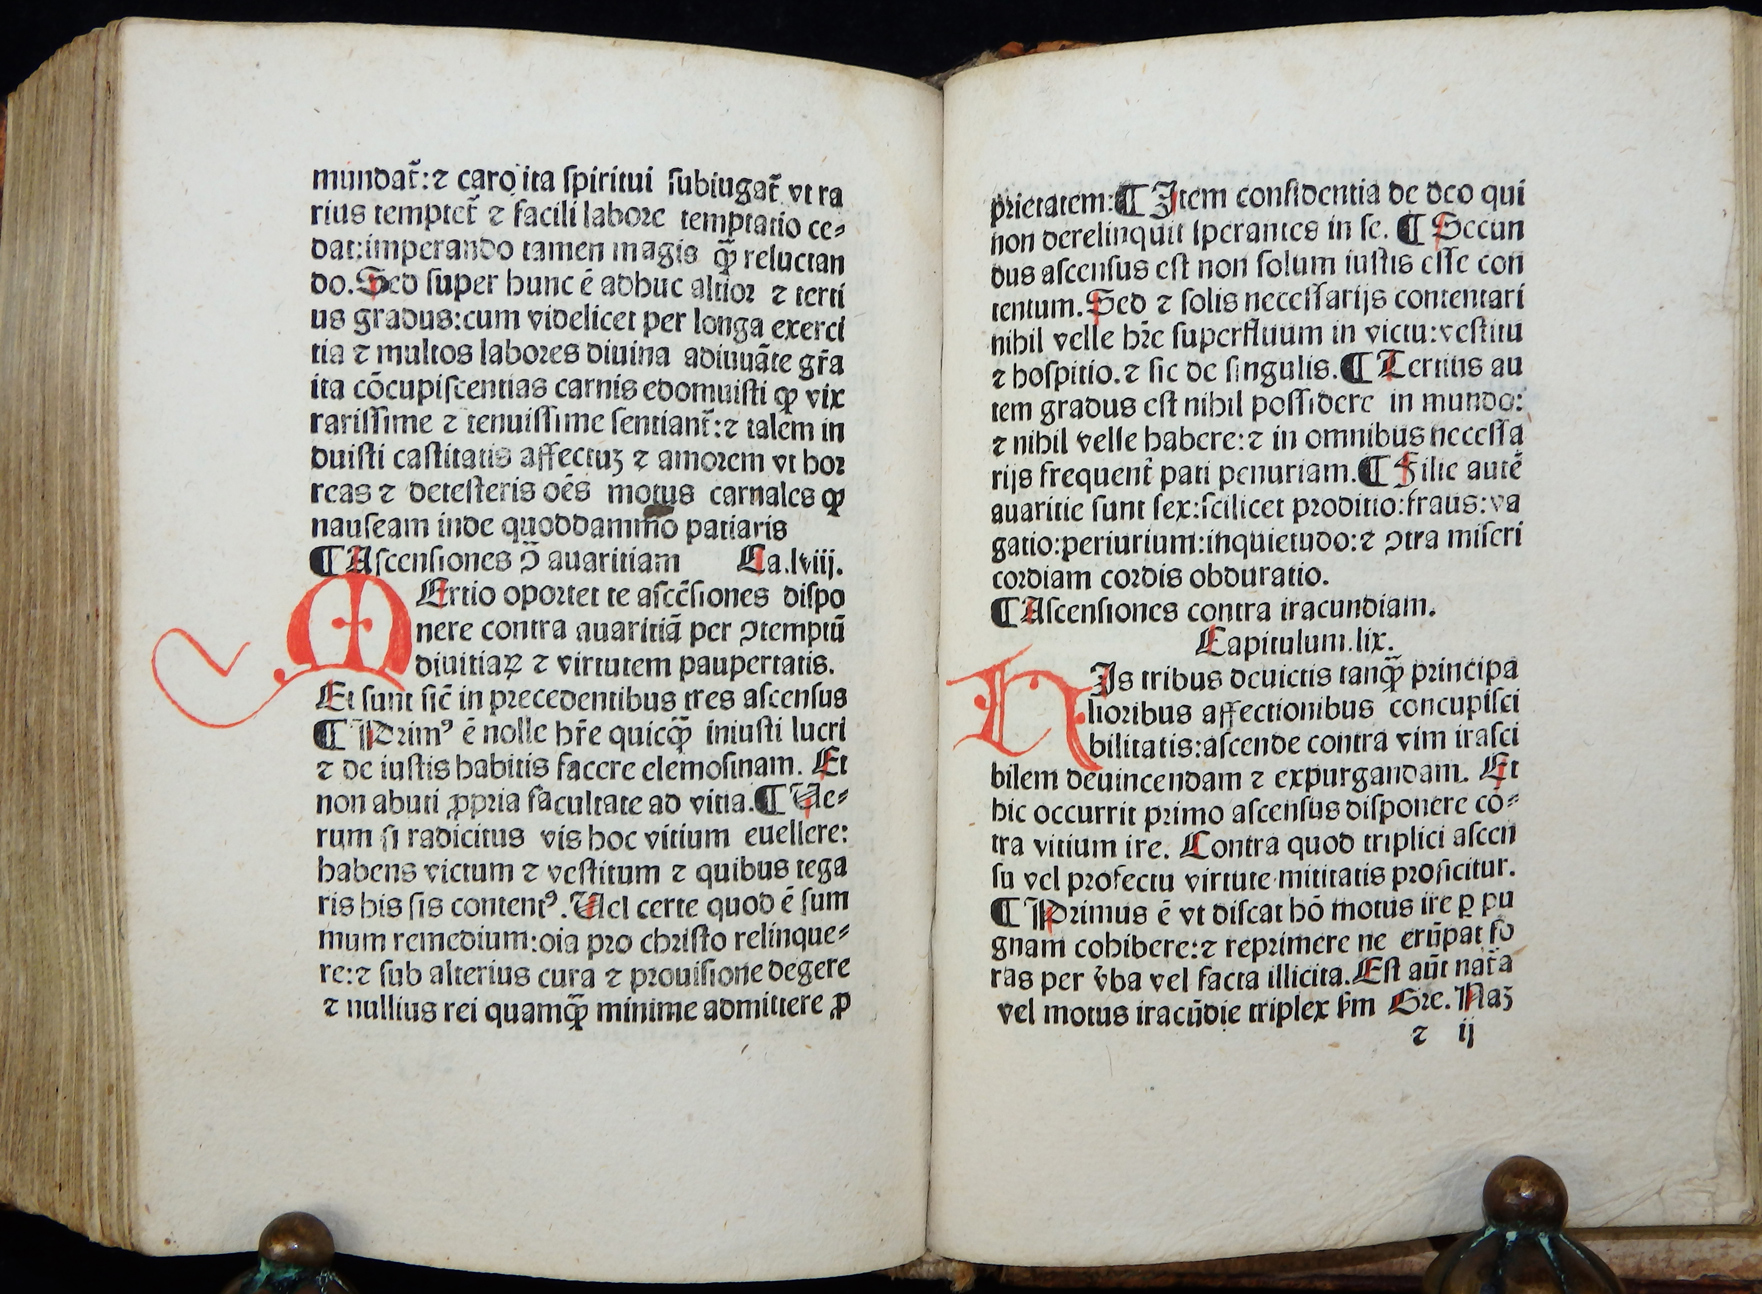 mundat̃:⁊ caro ita ſpiritui ſubiugat̃ vt ra
rius temptet̃ ⁊ facili labore temptatio ce⸗
dat:imperando tamen magis q̃ꝫ reluctan
do.Sed ſuper hunc ẽ adhuc altior ⁊ terti
us gradus:cum videlicet per longa exerci
tia ⁊ multos labores diuina adiuuãte gr̃a
ita cõcupiſcentias carnis edomuiſti ꝙ vix
rariſſime ⁊ tenuiſſime ſentiant̃:⁊ talem in
duiſti caſtitatis affectuꝫ ⁊ amorem vt hor
reas ⁊ deteſteris oẽs motus carnales ꝙ
nauſeam inde quoddãmõ patiaris
¶ Aſcenſiones ↄ̃ auaritiam Ca.lviij.
MErtio oportet te aſcẽſiones diſpo
nere contra auaritiã per ↄtemptũ
diuitiaꝝ ⁊ virtutem paupertatis.
Et ſunt ſic̃ in precedentibus tres aſcenſus
¶ Primꝰ ẽ nolle hr̃e quicq̃ꝫ iniuſti lucri
⁊ de iuſtis habitis facere elemoſinam. Et
non abuti ꝓpria facultate ad vitia.¶ Ue⸗
rum ſi radicitus vis hoc vitium euellere:
habens victum ⁊ veſtitum ⁊ quibus tega
ris his ſis contentꝰ.Uel certe quod ẽ ſum
mum remedium:oia pro chriſto relinque⸗
re:⁊ ſub alterius cura ⁊ prouiſione degere
⁊ nullius rei quamq̃ꝫ minime admittere ꝓ
prietatem:¶ Item confidentia de deo qui
non derelinquit ſperantes in ſe. ¶ Secun
dus aſcenſus eſt non ſolum iuſtis eſſe con
tentum.Sed ⁊ ſolis neceſſarijs contentari
nihil velle hr̃e ſuperfluum in victu:veſtitu
⁊ hoſpitio.⁊ ſic de ſingulis.¶ Tertius au
tem gradus eſt nihil poſſidere in mundo:
⁊ nihil velle habere:⁊ in omnibus neceſſa
rijs frequent̃ pati penuriam.¶ Filie autẽ
auaritie ſunt ſex:ſcilicet proditio:fraus:va
gatio:periurium:inquietudo:⁊ ↄtra miſeri
cordiam cordis obduratio.
¶ Aſcenſiones contra iracundiam.
Capitulum.lix.
HIs tribus deuictis tanq̃ꝫ principa
lioribus affectionibus concupiſci
bilitatis:aſcende contra vim iraſci
bilem deuincendam ⁊ expurgandam. Et
hic occurrit primo aſcenſus diſponere cõ⸗
tra vitium ire. Contra quod triplici aſcen
ſu vel profectu virtute mititatis proficitur.
¶ Primus ẽ vt diſcat hõ motus ire ꝑ pu
gnam cohibere:⁊ reprimere ne erũpat fo
ras per v̄ba vel facta illicita.Eſt aũt nat̃a
vel motus iracũdie triplex ſm̃ Gre. Naꝫ
⁊ ij